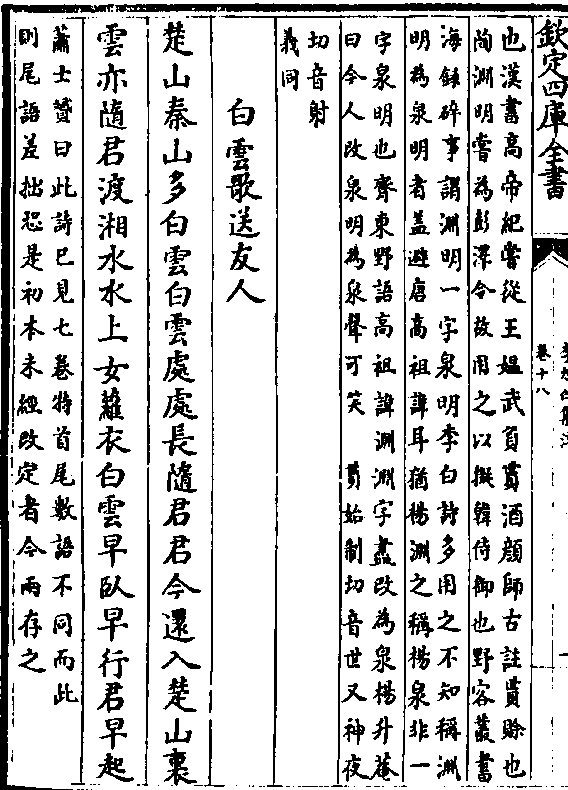 欽定四庫全書
卷十八
也漢書高帝紀嘗從王媪武負貰酒顔師古註貰賒也
陶淵明嘗為彭澤令故用之以擬韓侍御也野客叢書
海録碎事謂淵明一字泉明李白詩多用之不知稱淵
明為泉明者蓋避唐高祖諱耳猶楊淵之稱楊泉非一
字泉明也齊東野語高祖諱淵淵字盡改為泉楊升菴
曰今人改泉明為泉聲可笑　貰始制切音世又神夜
切音射
義同
白雲歌送友人
楚山秦山多白雲白雲處處長隨君君今還入楚山裏
雲亦隨君渡湘水水上女蘿衣白雲早臥早行君早起
蕭士贇曰此詩已見七卷特首尾數語不同而此
則尾語差拙恐是初本未經改定者今兩存之